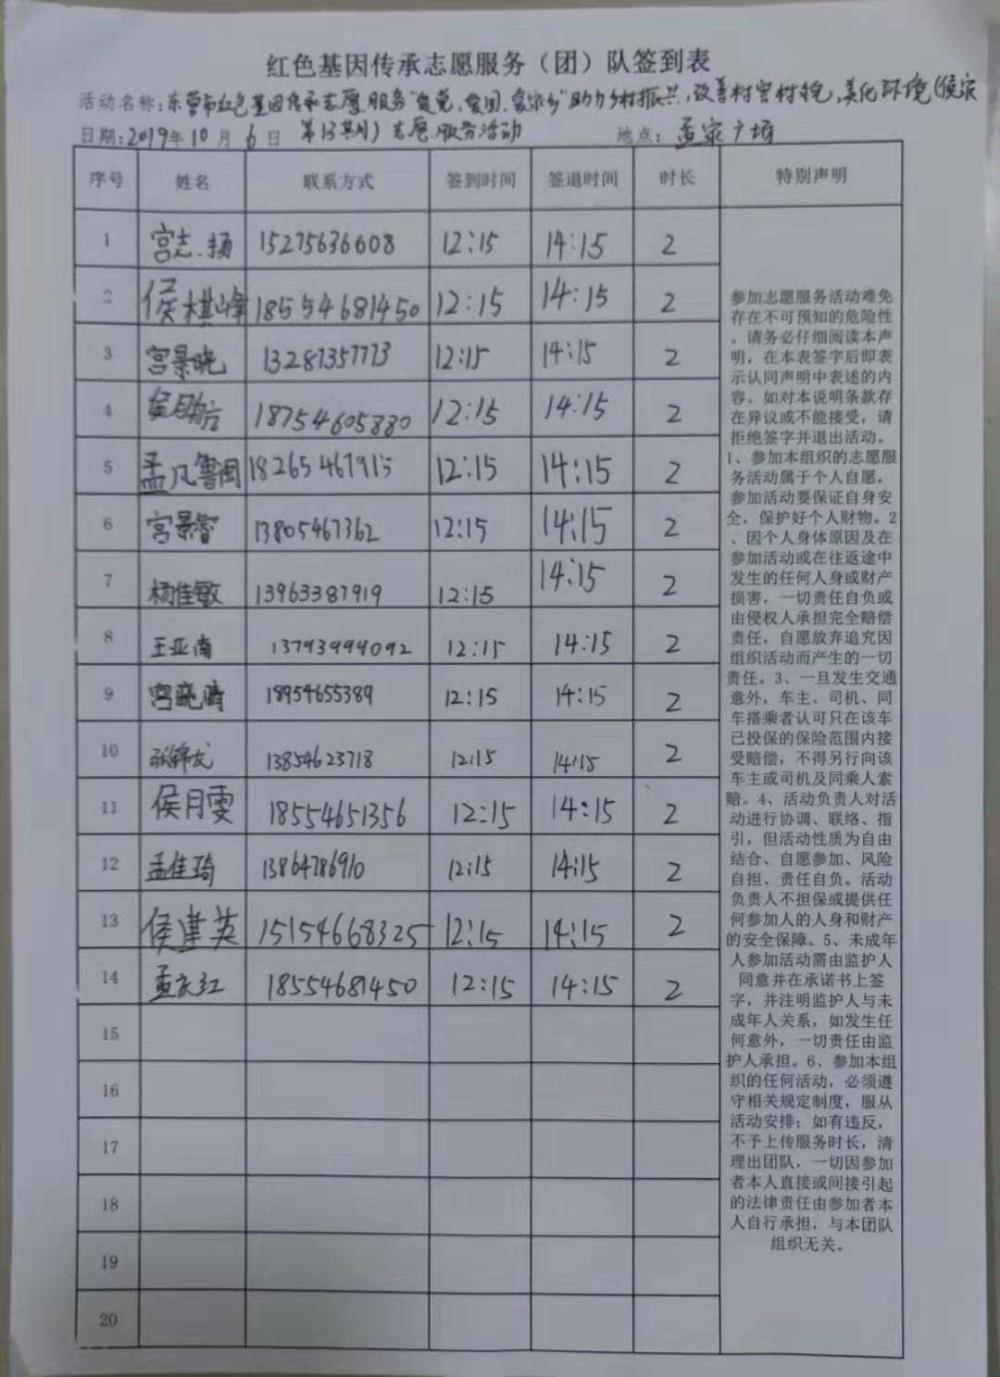 红色基因传承志愿服务（团）队签到表
活动名称：东营市红色基因传承志愿服务"爱党、爱国、爱家乡"助力乡村振兴，改善村容村貌，美化环境（侯家
日期：2019年10月6日 第13期）志愿服务活动 地点：孟家广场
序号 姓名 联系方式 签到时间 签退时间 时长 特别声明
1 宫志扬 15275636608 12:15 14:15 2
2 侯棋峰 18554681450 12:15 14:15 2
3 宫景晓 13287357773 12:15 14:15 2
4 18754605880 12:15 14:15 2
5 孟凡鲁闽 18265467915 12:15 14:15 2
6 宫景智 13805467362 12:15 14:15 2
7 杨佳敏 13963387919 12:15 14:15 2
8 王亚南 13793994092 12:15 14:15 2
9 宫晓晴 18954655389 12:15 14:15 2
10 张锦龙 13854623718 12:15 14:15 2
11 侯月雯 18554651356 12:15 14:15 2
12 孟佳琦 13864786910 12:15 14:15 2
13 侯建英 15154668325 12:15 14:15 2
14 孟庆红 18554681450 12:15 14:15 2
15
16
17
18
19
20
参加志愿服务活动难免
存在不可预知的危险性
，请务必仔细阅读本声
明，在本表签字后即表
示认同声明中表述的内
容。如对本说明条款存
在异议或不能接受，请
拒绝签字并退出活动。
1、参加本组织的志愿服
务活动属于个人自愿，
参加活动要保证自身安
全，保护好个人财物。2
、因个人身体原因及在
参加活动或在往返途中
发生的任何人身或财产
损害，一切责任自负或
由侵权人承担完全赔偿
责任，自愿放弃追究因
组织活动而产生的一切
责任。3、一旦发生交通
意外，车主、司机、同
车搭乘者认可只在该车
已投保的保险范围内接
受赔偿，不得另行向该
车主或司机及同乘人索
赔。4、活动负责人对活
动进行协调、联络、指
引，但活动性质为自由
结合、自愿参加、风险
自担、责任自负。活动
负责人不担保或提供任
何参加人的人身和财产
的安全保障。5、未成年
人参加活动需由监护人
同意并在承诺书上签
字，并注明监护人与未
成年人关系，如发生任
何意外，一切责任由监
护人承担。6、参加本组
织的任何活动，必须遵
守相关规定制度，服从
活动安排；如有违反，
不予上传服务时长，清
理出团队，一切因参加
者本人直接或间接引起
的法律责任由参加者本
人自行承担，与本团队
组织无关。